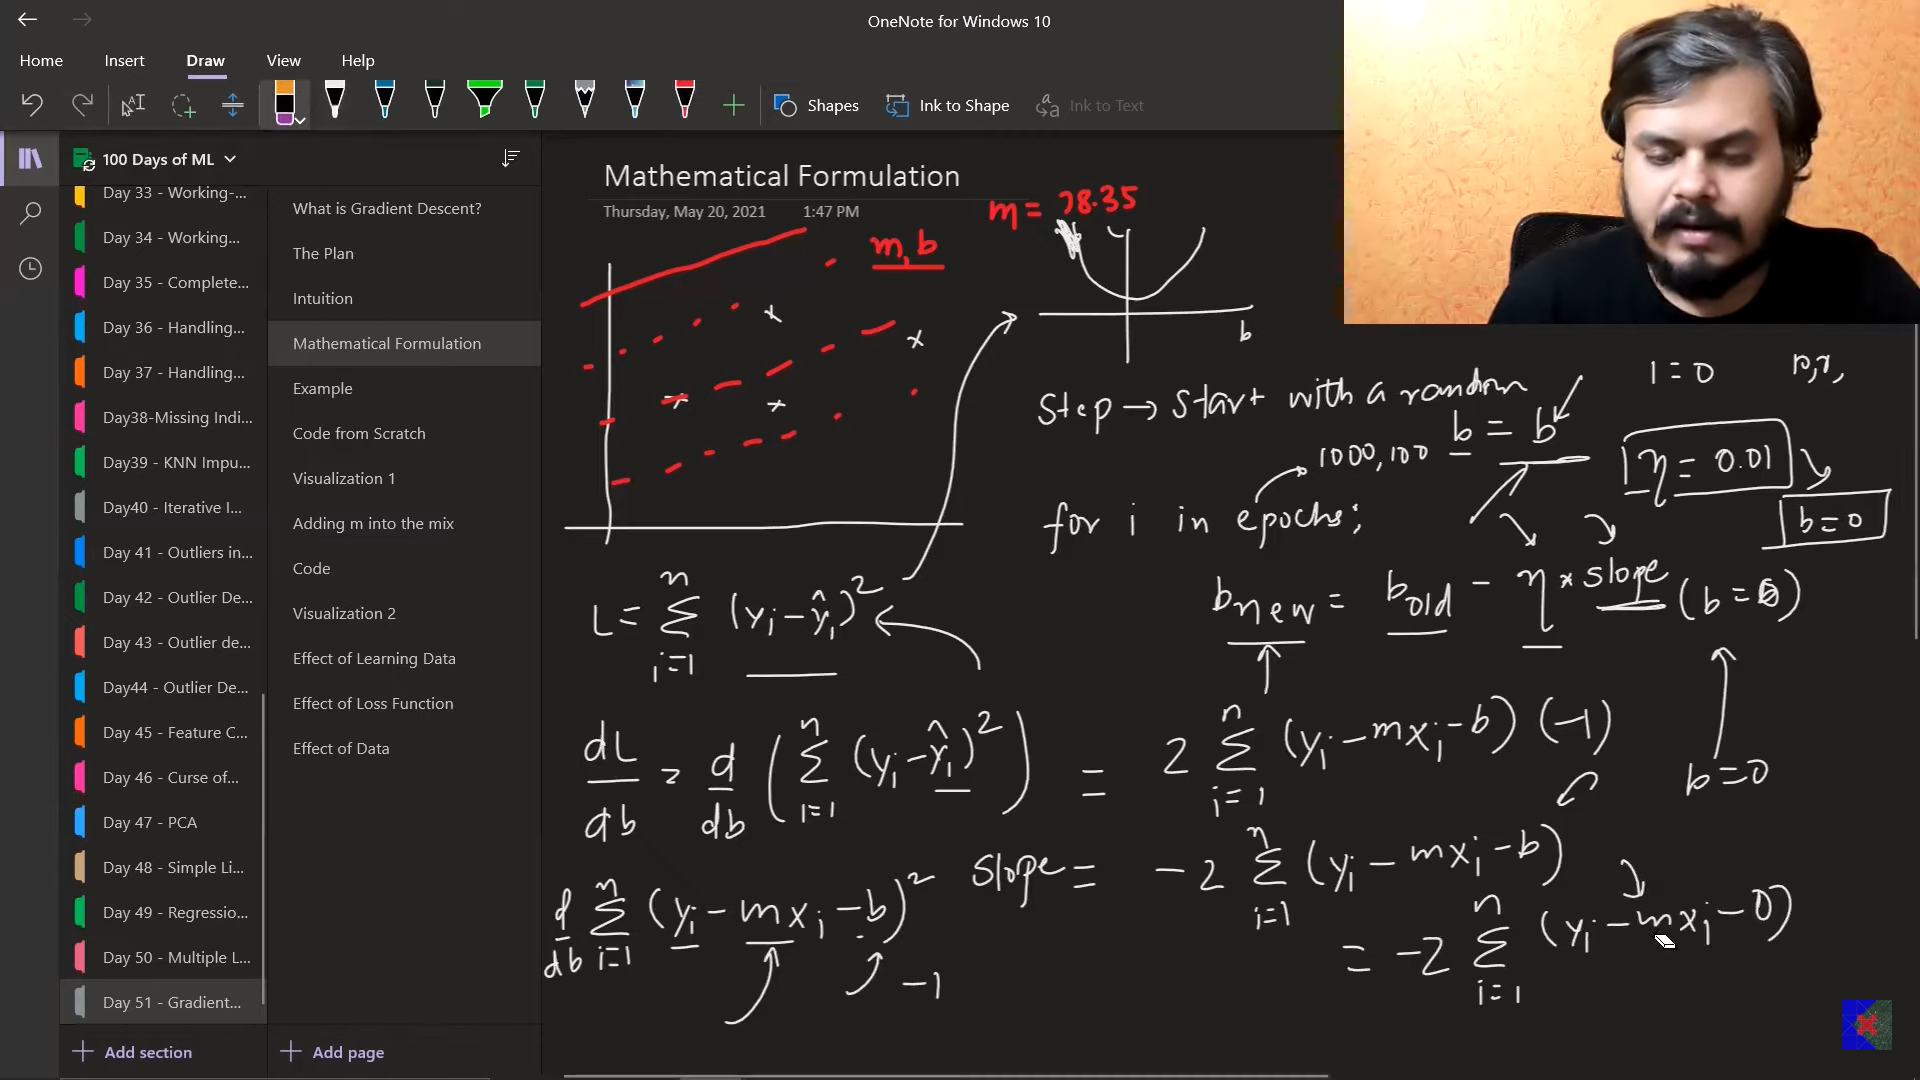 OneNote for Windows 10
Home Insert Draw View Help
Shapes Ink to Shape Ink to Text
100 Days of ML
Day 33 - Working-...
Day 34 - Working...
Day 35 - Complete...
Day 36 - Handling...
Day 37 - Handling...
Day38-Missing Indi...
Day39 - KNN Impu...
Day40 - Iterative I...
Day 41 - Outliers in...
Day 42 - Outlier De...
Day 43 - Outlier de...
Day44 - Outlier De...
Day 45 - Feature C...
Day 46 - Curse of...
Day 47 - PCA
Day 48 - Simple Li...
Day 49 - Regressio...
Day 50 - Multiple L...
Day 51 - Gradient...
Add section
What is Gradient Descent?
The Plan
Intuition
Mathematical Formulation
Example
Code from Scratch
Visualization 1
Adding m into the mix
Code
Visualization 2
Effect of Learning Data
Effect of Loss Function
Effect of Data
Add page
Mathematical Formulation
Thursday, May 20, 2021 1:47 PM
m = 78.35
m, b
b
Step → Start with a random
b = b
1000, 100
η = 0.01
b = 0
for i in epochs:
b new = b old - η * slope (b = 0)
L = Σ i=1 n (yi - ŷi)²
dL/db = d/db ( Σ i=1 n (yi - ŷi)² ) = 2 Σ i=1 n (yi - mxi - b) (-1)
b = 0
d/db Σ i=1 n (yi - mxi - b)²
-1
Slope = -2 Σ i=1 n (yi - mxi - b)
= -2 Σ i=1 n (yi - mxi - 0)